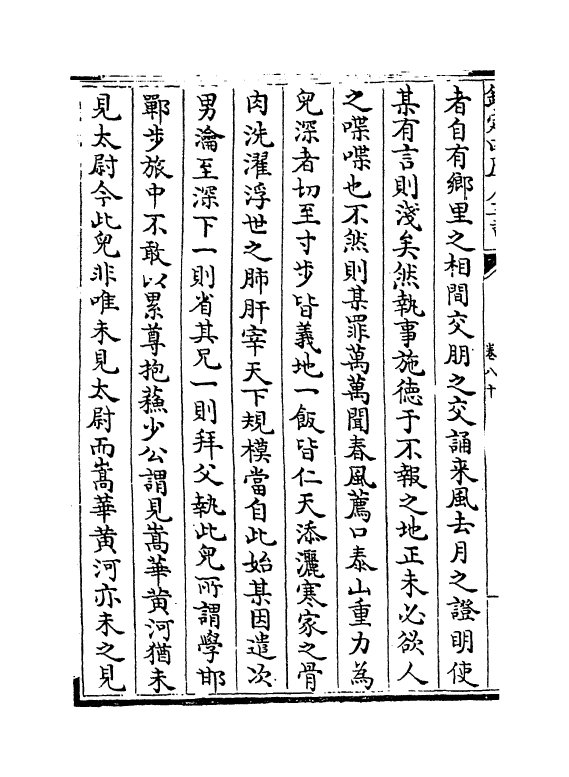 卷八十
者自有鄉里之相間交朋之交誦來風去月之證明使
某有言則淺矣然執事施德于不報之地正未必欲人
之喋喋也不然則某罪萬萬聞春風薦口泰山重力為
兒深者切至寸步皆義地一飯皆仁天添灑寒家之骨
肉洗濯浮世之肺肝宰天下規模當自此始某因遣次
男瀹至深下一則省其兄一則拜父執此兒所謂學邯
鄲步旅中不敢以累尊抱蘇少公謂見嵩華黄河猶未
見太尉今此兒非唯未見太尉而嵩華黄河亦未之見